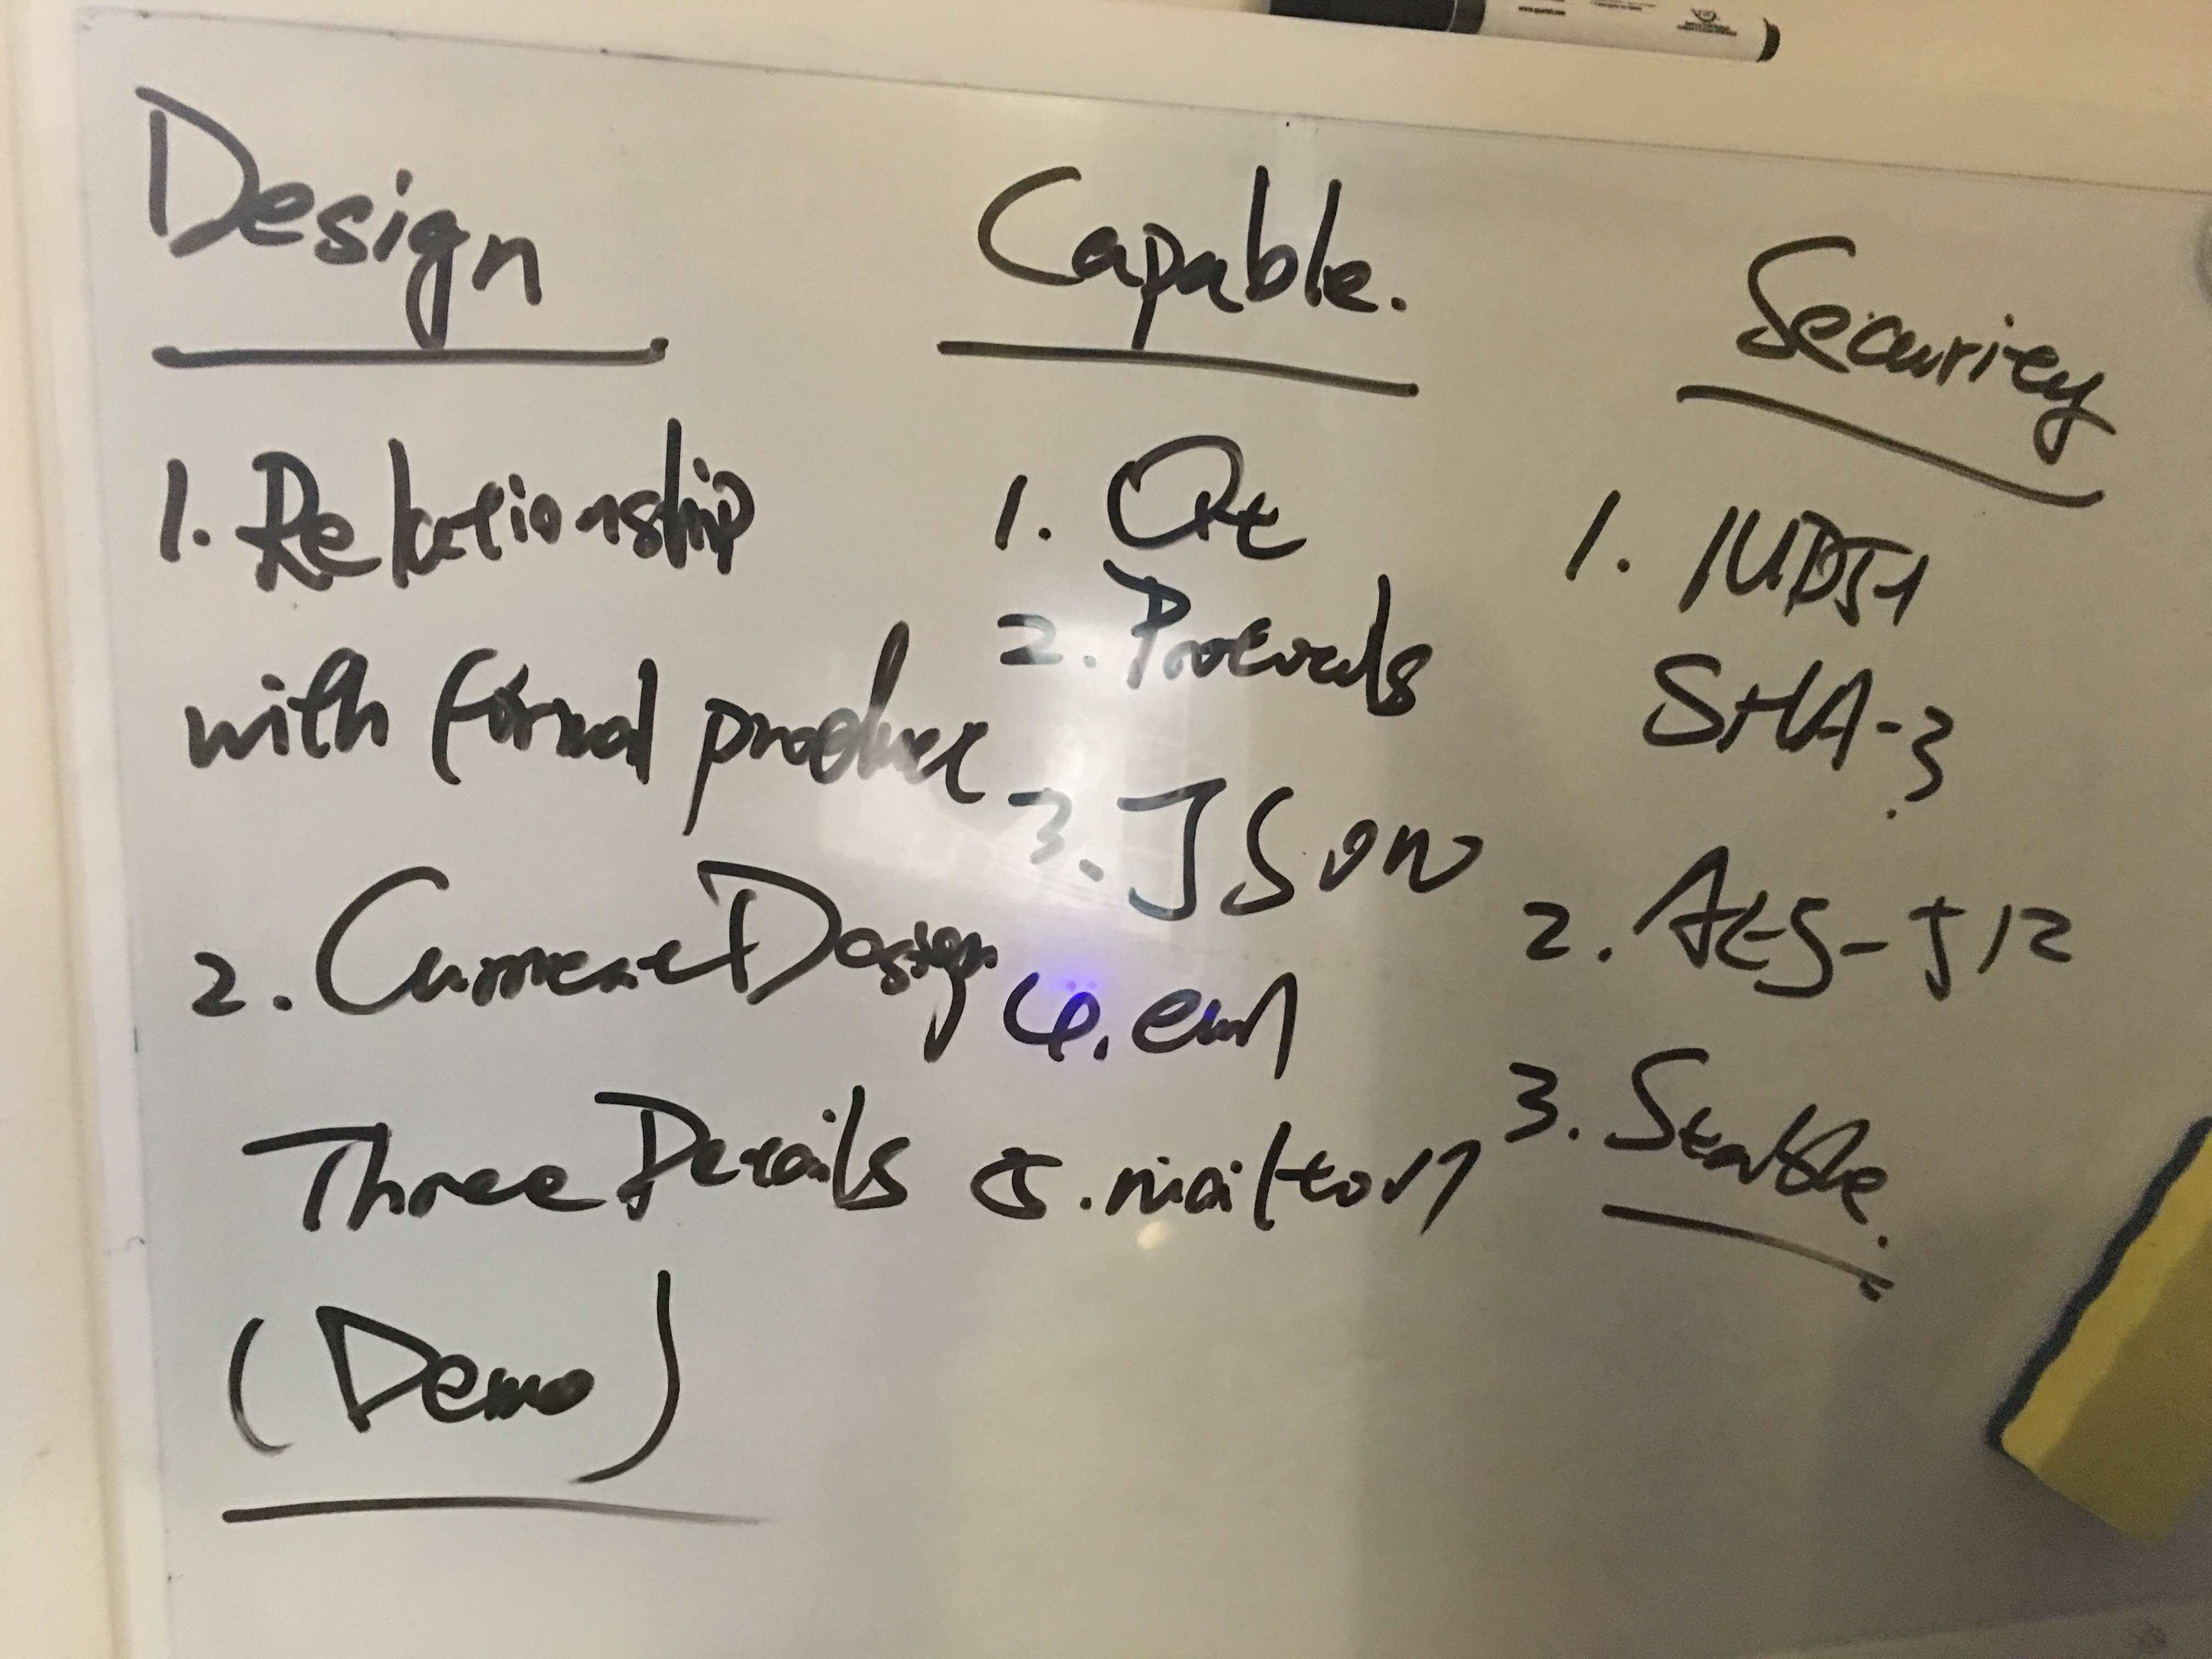 Design
1. Relationship
with formal product
2. Current Design
Three Details
(Demo)
Capable.
1. Qt
2. Protocols
3. JSON
4.
5.
Security
1. MD5+
SHA-3
2. AES-512
3. Stable.